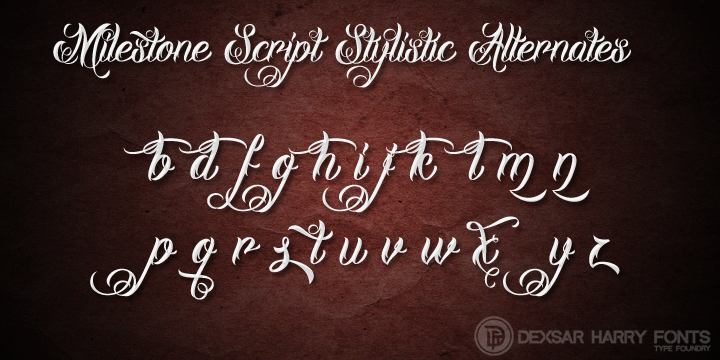 Milestone Script Stylistic Alternates
b d f g h i j k l m n
p q r s t u v w x y z
DEXSAR HARRY FONTS
TYPE FOUNDRY